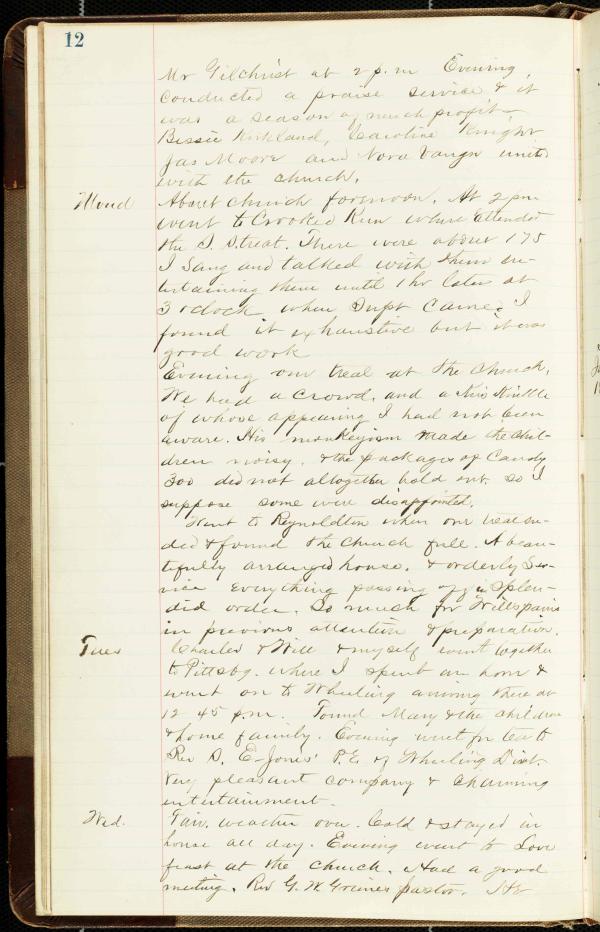 12
Mr Gilchrist at 2 p.m Evening
conducted a praise service & it
was a season of much profit
Bessie Kirkland, Caroline Knight
Jas Moore and Nora Vaugn united
with the church.
Mond About church forenoon. At 2 pm
went to Crooked Run where attended
the S. S. treat. There were about 175
I sang and talked with them en-
tertaining them until 1 hr later at
3 oclock when Supt came. I
found it exhaustive but it was
good work
Evening our treat at the church.
We had a crowd, and a Kriss Krinkle
of whose appearing I had not been
aware. His monkeyism made the chil-
dren noisy. & the packages of Candy
300 did not altogether hold out so I
suppose some were disappointed.
Went to Reynoldton when our treat en-
ded & found the church full. A beau-
tifully arranged house. & orderly Ser-
vice everything passing off in splen-
did order. So much for Will's pains
in previous attention & preparation.
Tues Charles & Will & myself went together
to Pittsbg. where I spent an hour &
went on to Wheeling arriving there at
12 45 p.m. Found Mary & the children
& home family. Evening went for tea to
Rev S. E. Jones' P.E. of Wheeling Dist.
Very pleasant company & charming
entertainment.
Wed. Fair weather over. Cold & stayed in
house all day. Evening went to Love
feast at the church. Had a good
meeting. Rev G. W. Grimes pastor.